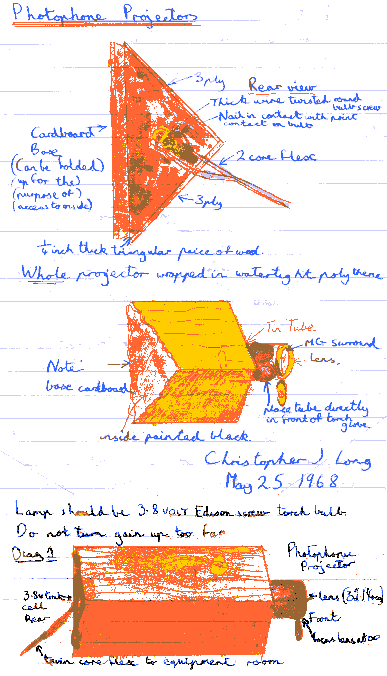 Photophone Projectors
3 ply
Rear view
Thick wire twisted round
bulb screw
Nail in contact with point
contact on bulb
Cardboard
Base
(Can be folded)
(up for the)
(purpose of)
(access to inside)
2 core flex
3 ply
1/4 inch thick triangular peice of wood.
Whole projector wrapped in watertight polythene
Tin Tube
MG surround
lens
Note
base cardboard
Place tube directly
in front of torch
globe
inside painted black.
Christopher J Long
May 25 1968
Lamp should be 3.8 volt Edison screw torch bulb.
Do not turn gain up too far
Diag 1
Photophone
Projector
3.8v
cell
Rear
lens
Front
twin core flex to equipment room